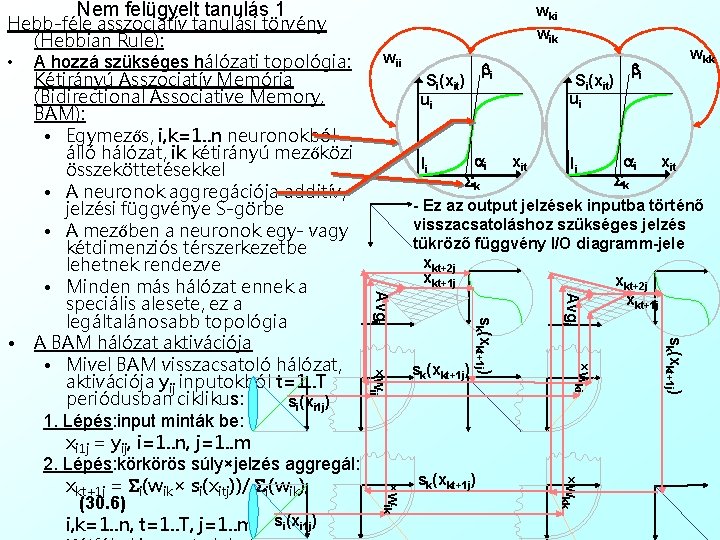 Nem felügyelt tanulás 1
Hebb-féle asszociatív tanulási törvény
(Hebbian Rule):
• A hozzá szükséges hálózati topológia:
Kétirányú Asszociatív Memória
(Bidirectional Associative Memory,
BAM):
• Egymezős, i,k=1..n neuronokból
álló hálózat, ik kétirányú mezőközi
összeköttetésekkel
• A neuronok aggregációja additív,
jelzési függvénye S-görbe
• A mezőben a neuronok egy- vagy
kétdimenziós térszerkezetbe
lehetnek rendezve
• Minden más hálózat ennek a
speciális alesete, ez a
legáltalánosabb topológia
• A BAM hálózat aktivációja
• Mivel BAM visszacsatoló hálózat,
aktivációja yij inputokból t=1..T
periódusban ciklikus:
1. Lépés:input minták be:
xi1j = yij, i=1..n, j=1..m
2. Lépés:körkörös súly×jelzés aggregál:
xkt+1j = Σi(wik× si(xitj))/Σi(wik),
(30.6)
i,k=1..n, t=1..T, j=1..m
si(xi1j)
si(xi1j)
wki
wik
wii
wkk
Si(xit)
βi
ui
Ii
αi
xit
Σk
Si(xit)
βi
ui
Ii
αi
xit
Σk
- Ez az output jelzések inputba történő
visszacsatoláshoz szükséges jelzés
tükröző függvény I/O diagramm-jele
xkt+2j
xkt+1j
Avgi
sk(xkt+1j)
xkt+2j
xkt+1j
Avgi
sk(xkt+1j)
×wii
sk(xkt+1j)
×wki
×wik
sk(xkt+1j)
×wkk